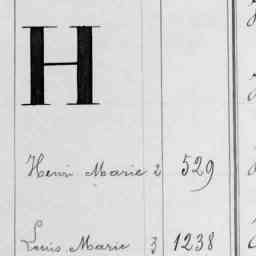 H
Henri Marie 2 529
Louis Marie 3 1238